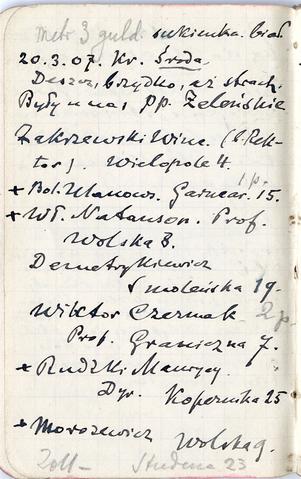 metr 3 guld. sukienka. brąz.
20.3.07. Kr. Środa.
Deszcz, brzydko, aż strach.
Były u nas, pp. Żeleńskie
Zakrzewski Winc. (b. Rek-
tor) Wielopole 4.
1 p.
+ Bol. Ulanows. Garncar. 15.
+ Wł. Natanson. Prof.
Wolska 3.
Demetrykiewicz
Smoleńska 19.
Wiktor Czermak 2 p.
Prof. Graniczna 7.
+ Rudzki Maurycy.
Dyr. Kopernika 25
+ Morozewicz
Wolska 9.
Zoll – Studena 23